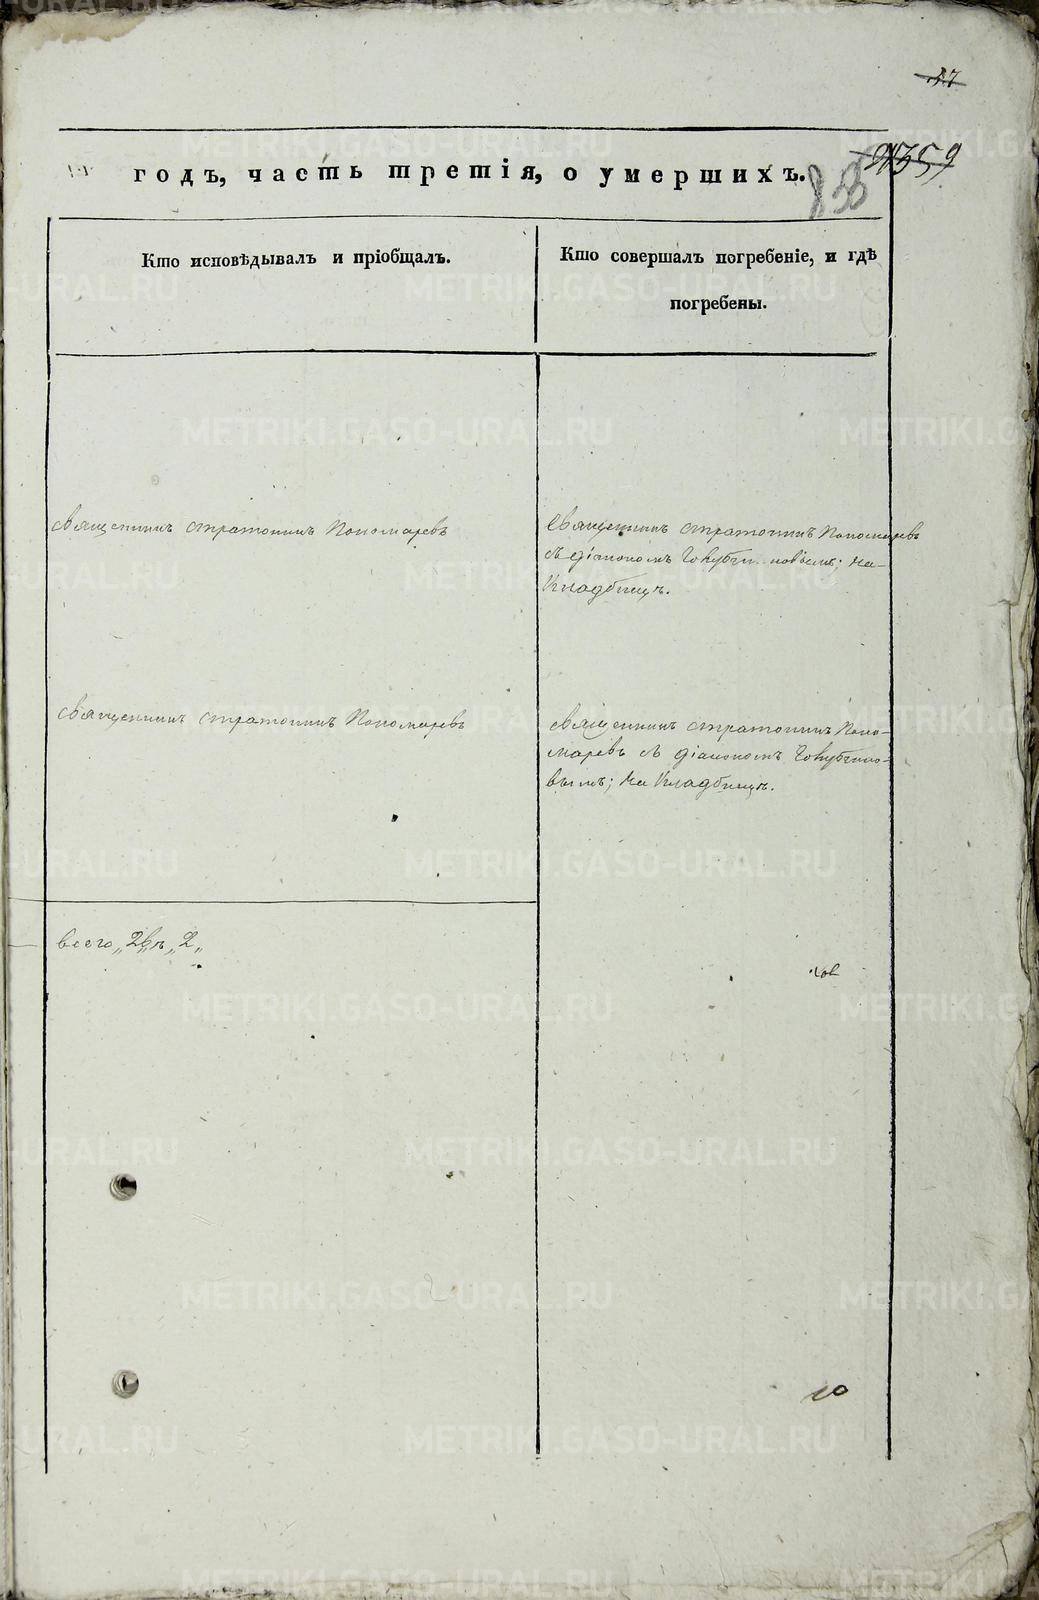 57
годъ, часть третія, о умершихъ.
858
359
Кто исповѣдывалъ и пріобщалъ.
Кто совершалъ погребеніе, и гдѣ
погребены.
священникъ стратоникъ Пономаревъ
священникъ стратоникъ Пономаревъ
съ діакономъ
на
Кладбищѣ.
священникъ стратоникъ Пономаревъ
священникъ стратоникъ Поно-
маревъ съ діакономъ
вымъ; на Кладбищѣ.
всего „2 въ „2„
METRIKI.GASO-URAL.RU